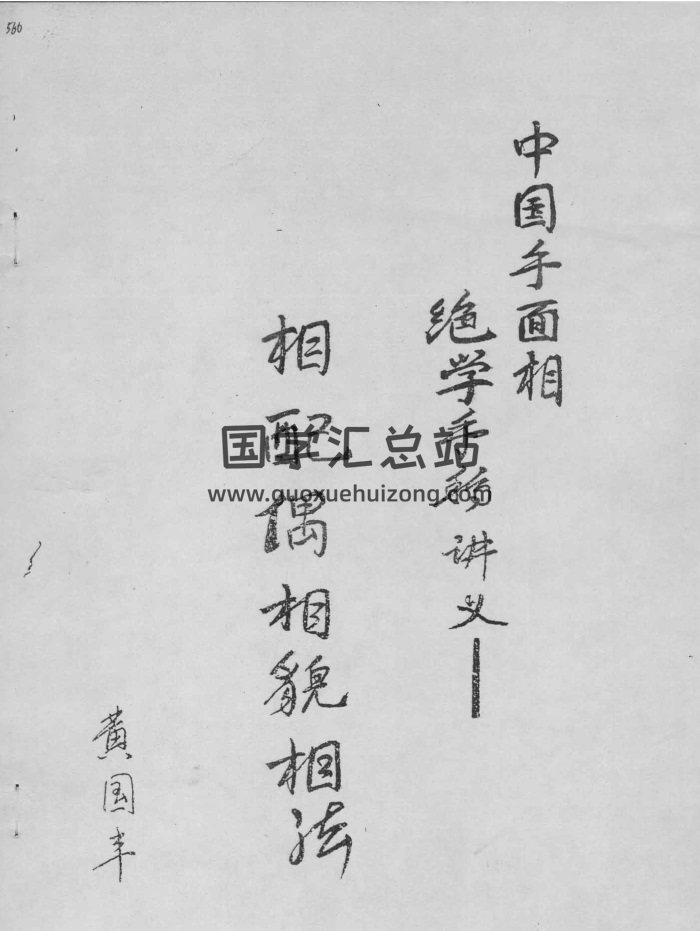 560
中国手面相
绝学讲义—
相配偶相貌相法
黄国丰
国学汇总站
www.guoxuehuizong.com